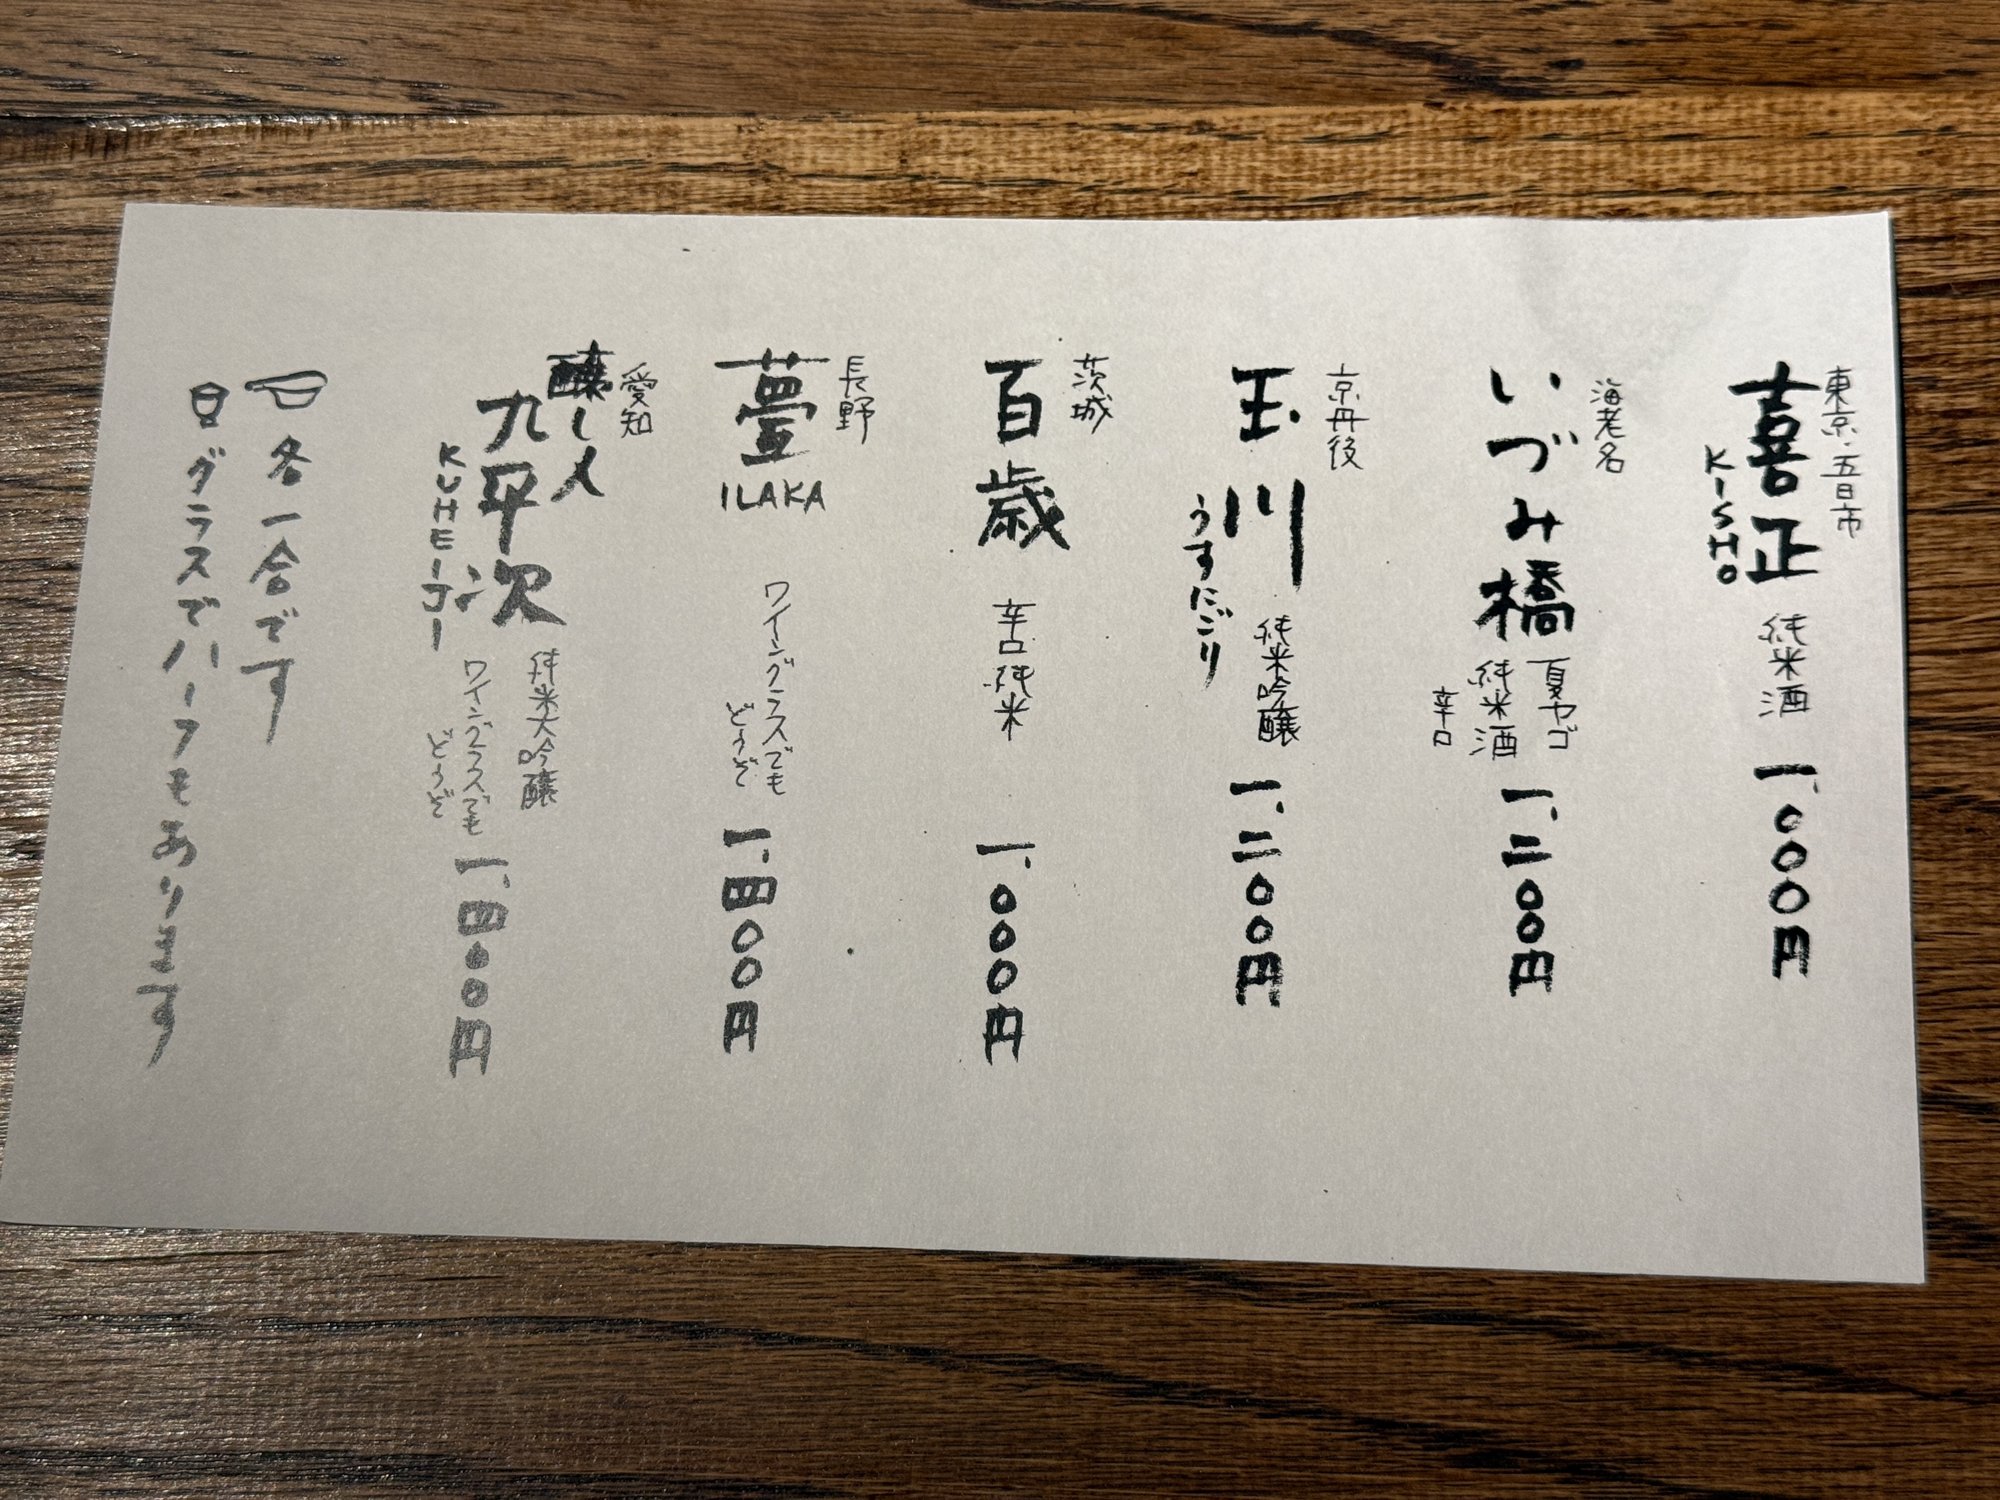 東京・五日市
喜正
KISHO
純米酒
一、〇〇〇円
海老名
いづみ橋
夏ヤゴ
純米酒
辛口
一、二〇〇円
京丹後
玉川
うすにごり
純米吟醸
一、二〇〇円
茨城
百歳
辛口純米
一、〇〇〇円
長野
薹
ILAKA
ワイングラスでも
どうぞ
一、四〇〇円
愛知
醸し人
九平次
KUHEIJI
純米大吟醸
ワイングラスでも
どうぞ
一、四〇〇円
各一合です
グラスでハーフもあります